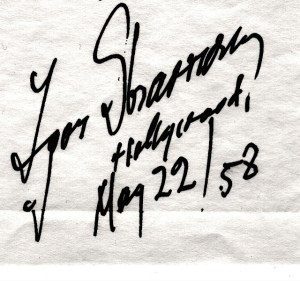 Igor Stravinsky
Hollywood,
May 22/58